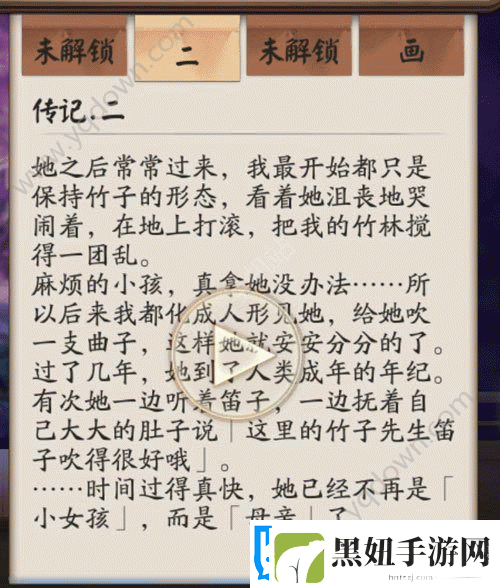 未解锁 二 未解锁 画
传记.二
她之后常常过来，我最开始都只是
保持竹子的形态，看着她沮丧地哭
闹着，在地上打滚，把我的竹林搅
得一团乱。
麻烦的小孩，真拿她没办法……所
以后来我都化成人形见她，给她吹
一支曲子，这样她就安安分分的了。
过了几年，她到了人类成年的年纪。
有次她一边听着笛子，一边抚着自
己大大的肚子说「这里的竹子先生笛
子吹得很好哦」。
……时间过得真快，她已经不再是「
小女孩」，而是「母亲」了
www.yqdown.com
www.yqdown.com
黑妞手游网